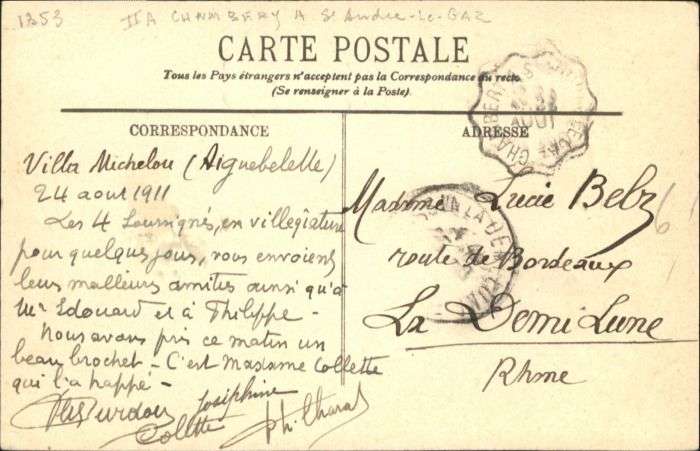 1253 IIA CHAMBERY A St Andre-Le-GAZ
CARTE POSTALE
Tous les Pays étrangers n'acceptent pas la Correspondance au recto
(Se renseigner à la Poste).
CORRESPONDANCE
Villa Michelon (Aiguebelette)
24 aout 1911
Les 4 soussignés, en villégiature
pour quelques jous, vous envoient
leus meilleurs amitiés ainsi qu'à
Mr Edouard et à Philippe -
Nous avons pris ce matin un
beau brochet - C'est Madame Collette
qui l'a happé -
Josiphine
Collette
Ph. Charat
ADRESSE
Madame Lucie Belz
route de Bordeaux
La Demi Lune
Rhône
CHAMBERY
AOUT
LA DEMI